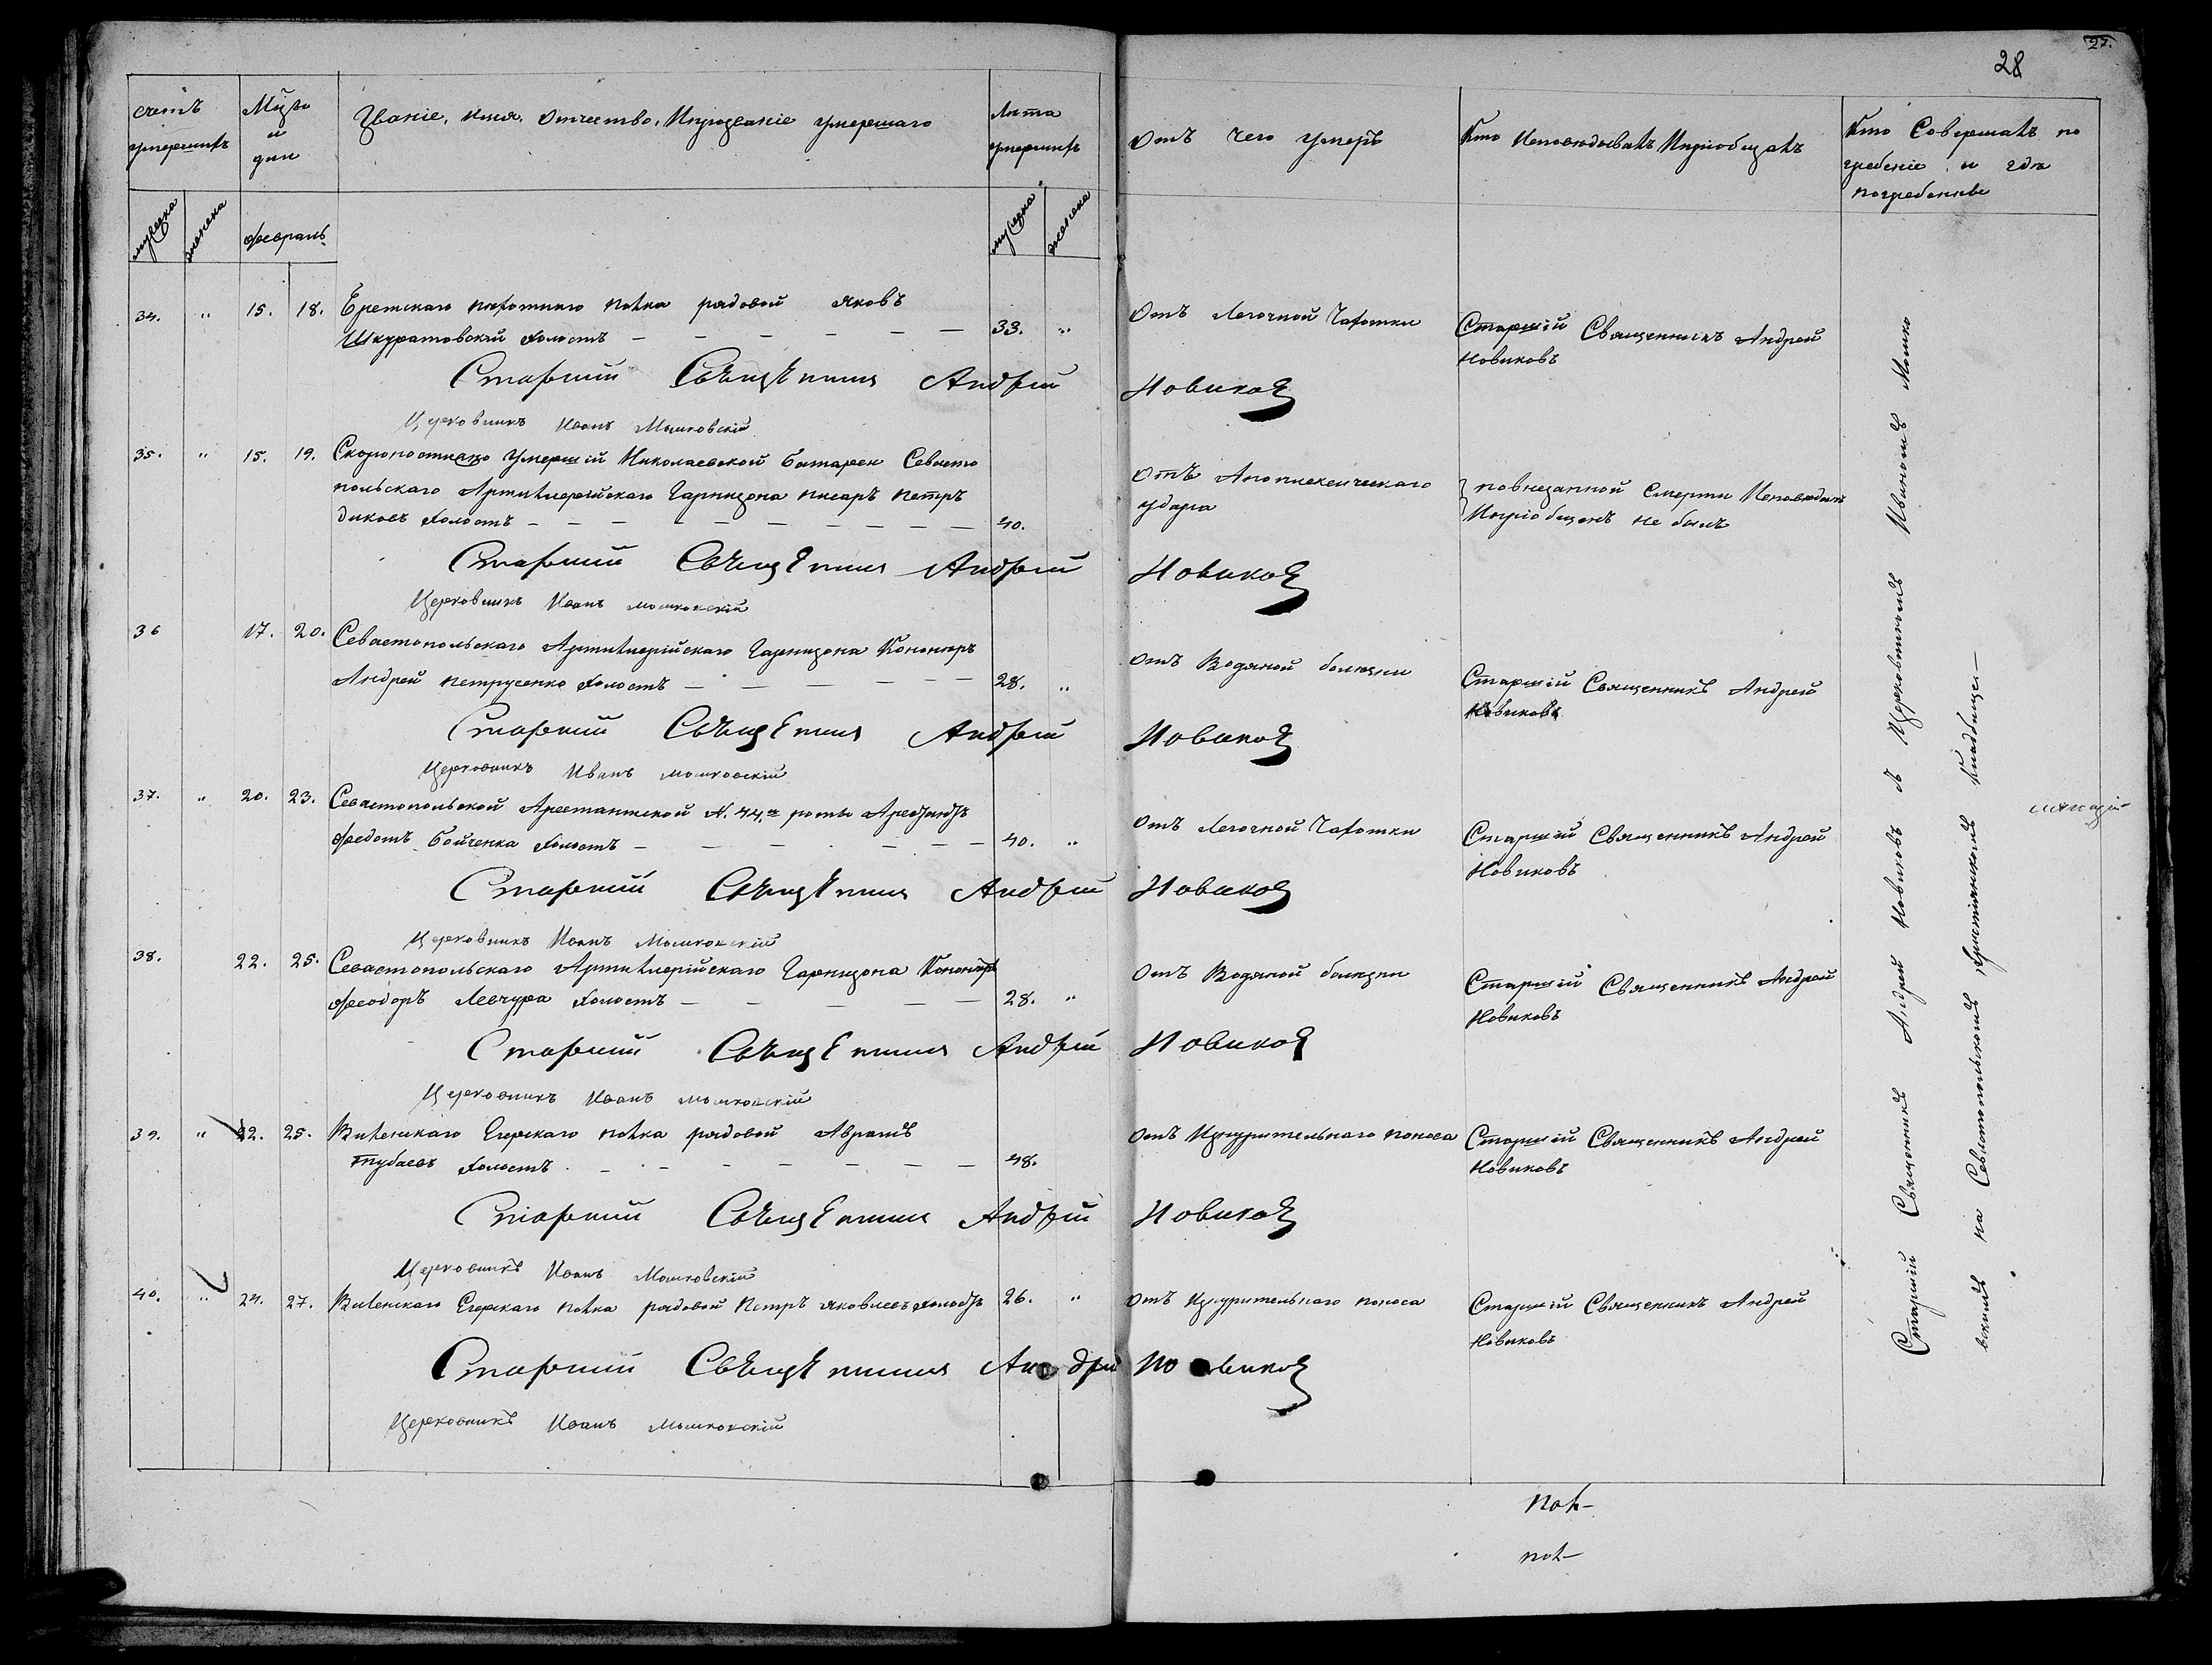 27.
28
счетъ умершихъ
Мцъ и дни
Званіе, имя, Отчество, Ипрозваніе умершаго
Лѣта умершихъ
Отъ чего умеръ
Кто Исповѣдывалъ Ипріобщалъ
Кто Совершалъ по
гребеніе и гдѣ
погребенны
мужеска
женска
февраль
мужеска
женска
34. " 15. 18. Бретскаго пѣхотнаго полка рядовой яковъ
Шкуратовскій холостъ — — — — — — 33. "
Отъ Легочной Чахотки
Старшій Священникъ Андрей
Новиковъ
Старший Свещенник Андрей Новиков
Церковникъ Иванъ Мошковскій
35. " 15. 19. Скоропостижно Умершій Николаевской батареи Севасто
польскаго Артилерійскаго Гарнизона писарь Петръ
диковъ холостъ — — — — — — — — — 40.
Отъ Апоплексическаго
удара
повнезапной Смерти Исповѣданъ
Ипріобщенъ не былъ
Старший Свещенник Андрей Новиков
Церковникъ Иванъ мошковскій
36 17. 20. Севастопольскаго Артилерійскаго Гарнизона Кононеръ
Андрей петрусенко холостъ — — — — — — 28. "
Отъ Водяной болѣзни
Старшій Священникъ Андрей
Новиковъ
Старший Свещенник Андрей Новиков
Церковникъ Иванъ мошковскій
37. " 20. 23. Севастопольской Арестантской N. 44й роты Арестантъ
Федотъ Бойченка холостъ — — — — — — 40. "
Отъ Легочной Чахотки
Старшій Священникъ Андрей
Новиковъ
Старший Свещенник Андрей Новиков
Церковникъ Иванъ Мошковскій
38. 22. 25. Севастопольскаго Артилерійскаго Гарнизона Кононеръ
Феодоръ Левчура холостъ — — — — — 28. "
Отъ Водяной болѣзни
Старшій Священникъ Андрей
Новиковъ
Старший Свещенник Андрей Новиков
Церковникъ Иванъ мошковскій
39. " 22. 25. Виленскаго Егерскаго полка рядовой Абрамъ
холостъ — — — — — — — 48.
Отъ Изнурительнаго поноса
Старшій Священникъ Андрей
Новиковъ
Старший Свещенник Андрей Новиков
Церковникъ Иванъ Мошковскій
40. " 24. 27. Виленскаго Егерскаго полка рядовой Петръ яковлевъ холостъ 26. "
Отъ Изнурительнаго поноса
Старшій Священникъ Андрей
Новиковъ
Старший Свещенник Андрей Новиков
Церковникъ Иванъ мошковскій
Старшій Священникъ Андрей Новиковъ съ Церковникомъ Иваномъ Мошко
вскимъ на Севастопольскомъ Христіанскомъ Кладбищѣ —
пол—
пол—